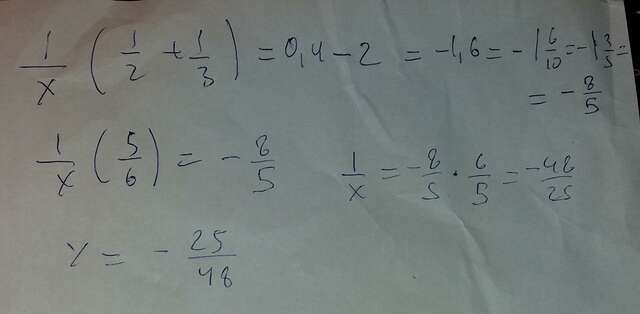 1/x (1/2 + 1/3) = 0,4 - 2 = -1,6 = -1 6/10 = -1 3/5 =
= - 8/5
1/x (5/6) = - 8/5    1/x = - 8/5 · 6/5 = -48/25
x = - 25/48